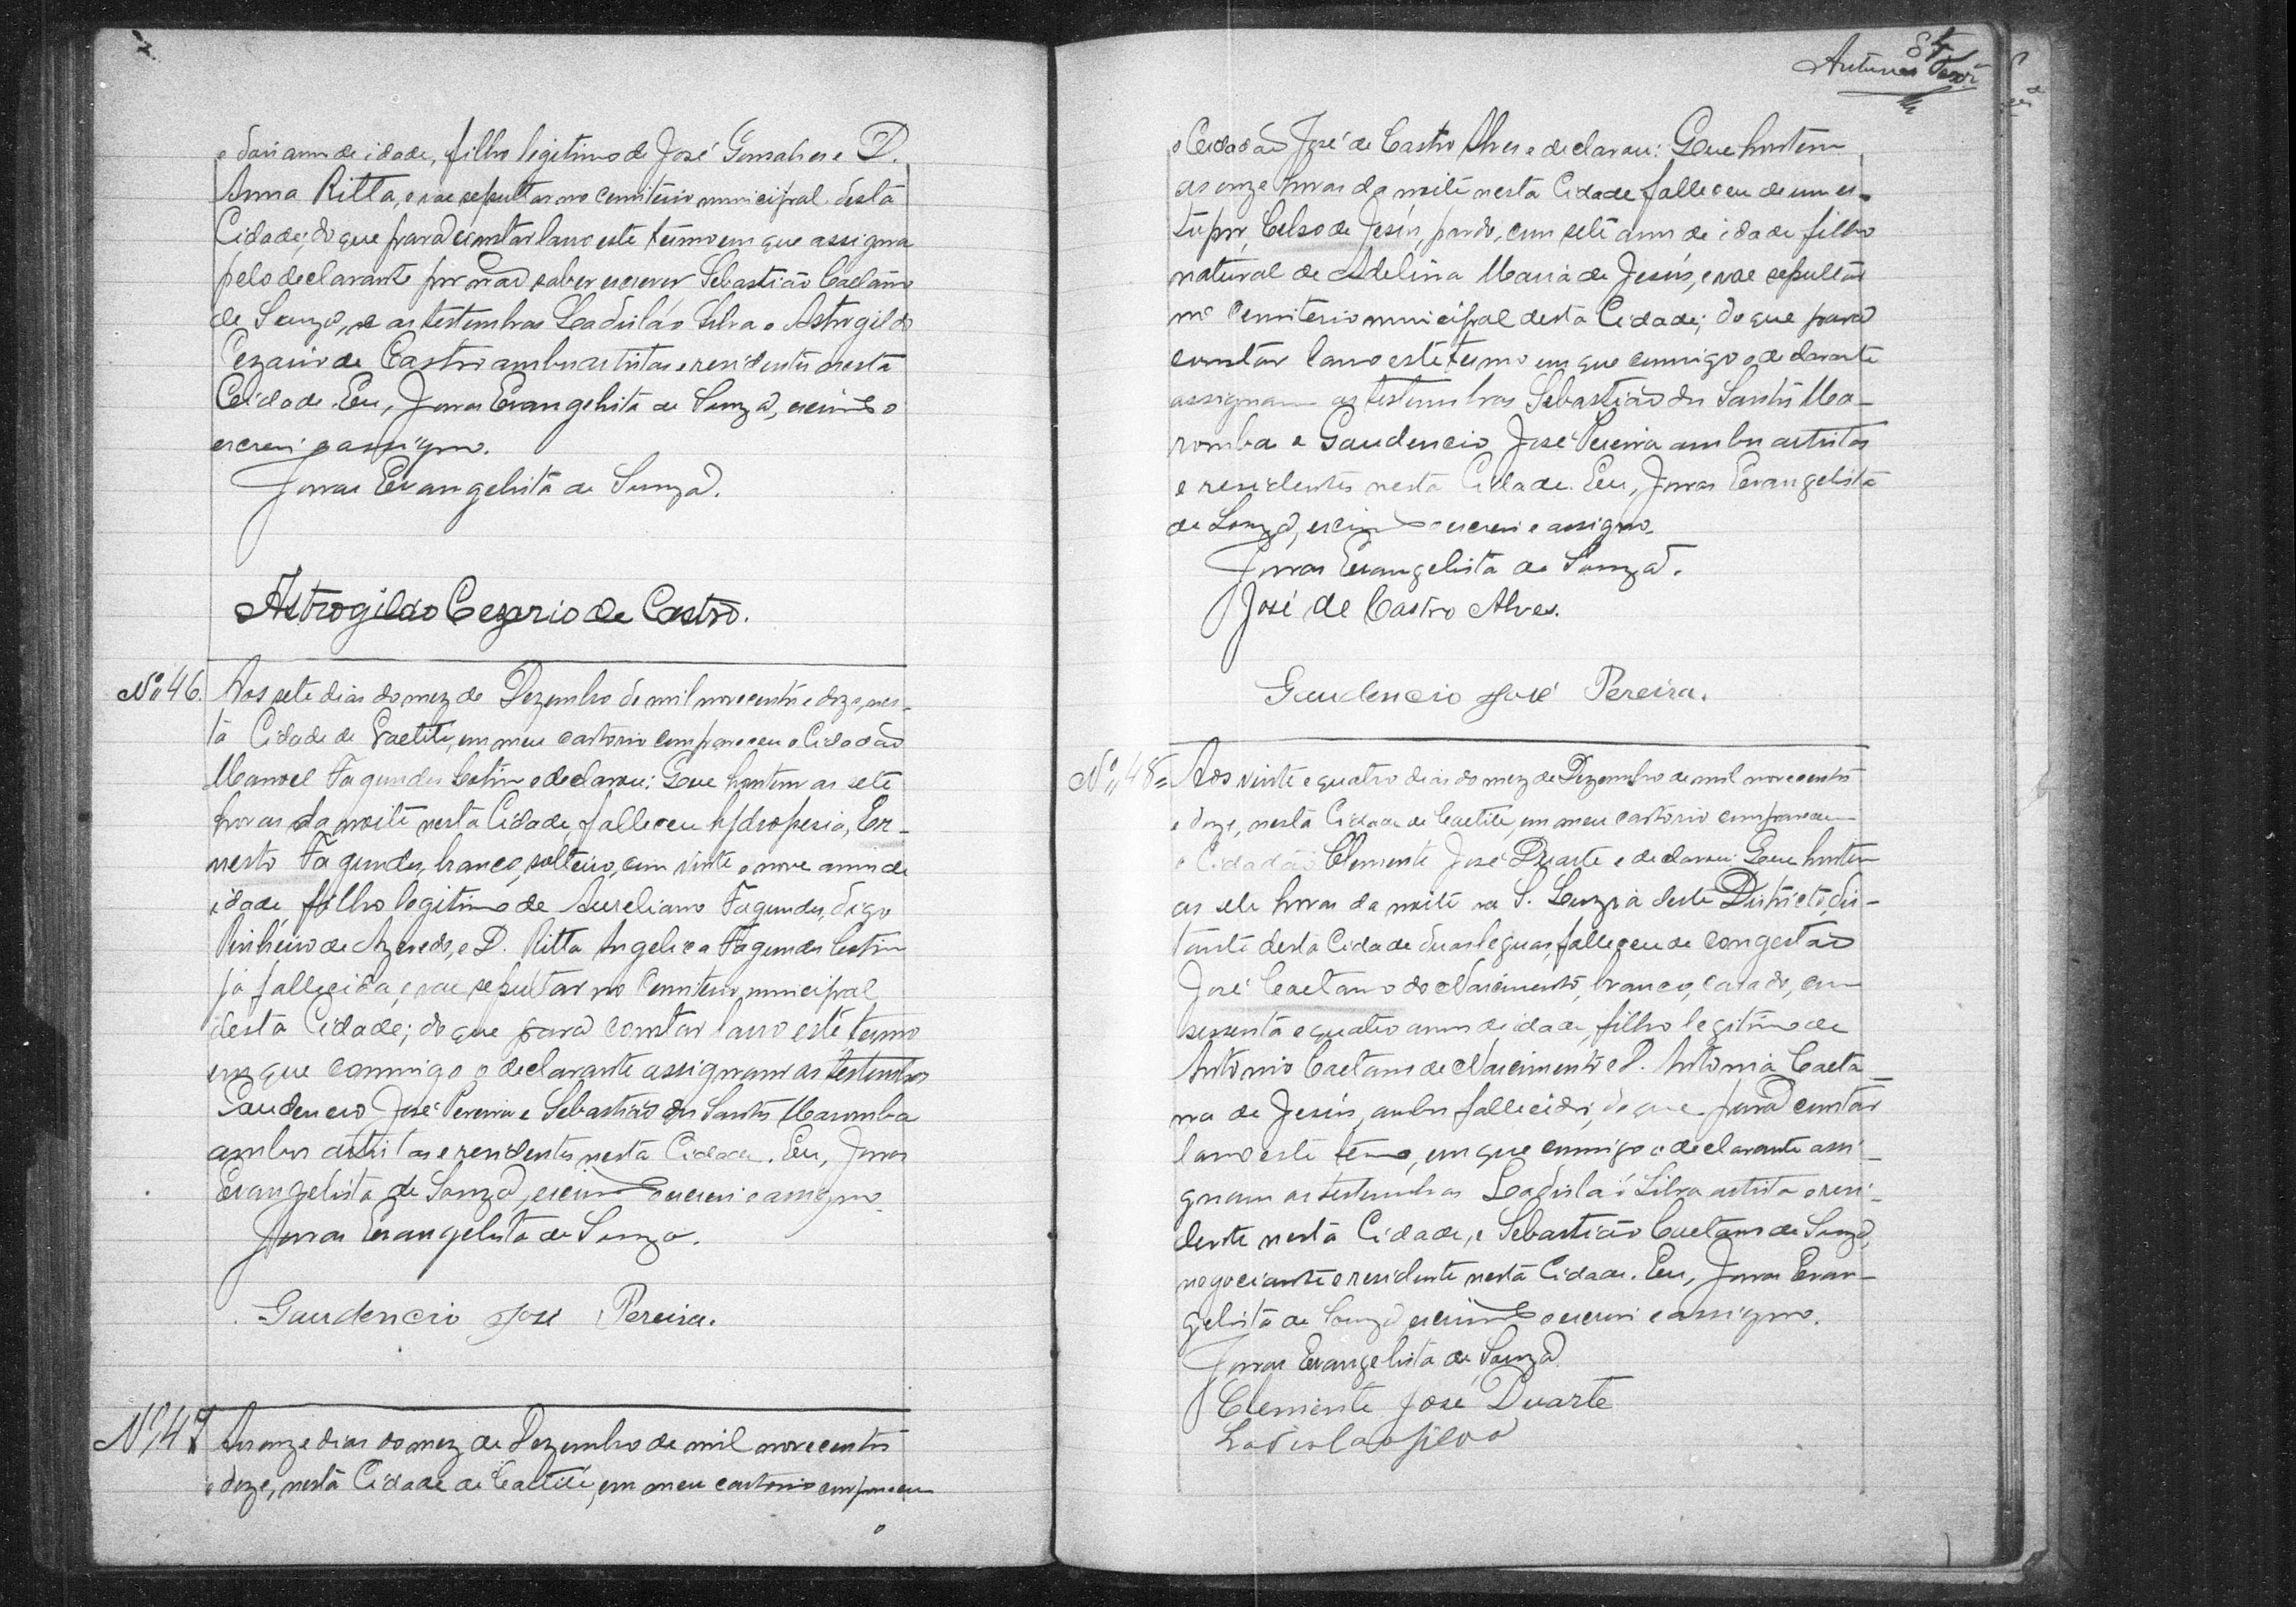 e dois annos de idade, filho legitimo de José Gonsalves e D.
Anna Ritta, e vae sepultar no cemiterio municipal desta
Cidade; do que para constar lavro este termo em que assigna
pelo declarante por não saber escrever Sebastião Caetano
de Souza, e as testemunhas Ladisláo Silva e Astrogildo
Cezario de Castro ambos artistas e residentes nesta
Cidade. Eu, Jonas Evangelista de Souza, escrivão o
escrevi e assigno.
Jonas Evangelista de Souza.
Astrogildo Cezario de Castro.
Nº 46. Aos sete dias do mez de Dezembro de mil novecentos e doze, nes-
ta Cidade de Caetité, em meu cartorio compareceu o Cidadão
Manoel Fagundes Cotrim e declarou: Que hontem as sete
horas da noite nesta Cidade, falleceu hydropesia, Er-
nesto Fagundes, branco, solteiro, com vinte e nove annos de
idade, filho legitimo de Aureliano Fagundes, digo
Pinheiro de Azevedo, e D. Ritta Angelica Fagundes Cotrim
já fallecida, e vae sepultar no Cemiterio municipal
desta Cidade; do que para constar lavro este termo
em que commigo o declarante assignam as testemunhas
Gaudencio José Pereira e Sebastião dos Santos Maromba
ambos artistas e residentes nesta Cidade. Eu, Jonas
Evangelista de Souza, escrivão o escrevi e assigno.
Jonas Evangelista de Souza.
Gaudencio José Pereira.
Nº 47 Aos onze dias do mez de Dezembro de mil novecentos
e doze, nesta Cidade de Caetité, em meu cartorio compareceu
o
84
Antunes
o Cidadão José de Castro Alves e declarou: Que hontem
as onze horas da noite nesta Cidade falleceu de um es-
tupor, Celso de Jesús, pardo, com sete annos de idade filho
natural de Adelina Maria de Jesús, e vae sepultar
no Cemiterio municipal desta Cidade; do que para
constar lavro este termo em que commigo o declarante
assignam as testemunhas Sebastião dos Santos Ma-
romba e Gaudencio José Pereira ambos artistas
e residentes nesta Cidade. Eu, Jonas Evangelista
de Souza, escrivão o escrevi e assigno.
Jonas Evangelista de Souza.
José de Castro Alves.
Gaudencio José Pereira.
Nº 48 = Aos vinte e quatro dias do mez de Dezembro de mil novecentos
e doze, nesta Cidade de Caetité, em meu cartorio compareceu
o Cidadão Clemente José Duarte e declarou: Que hontem
as sete horas da noite na S. Luzia deste Districto, dis-
tante desta Cidade duas leguas, falleceu de congestão
José Caetano do Nascimento, branco, casado, com
sessenta e quatro annos de idade, filho legitimo de
Antonio Caetano de Nascimento e D. Antonia Caeta-
na de Jesús, ambos fallecidos; do que para constar
lavro este termo, em que commigo o declarante assi-
gnam as testemunhas Ladisláo Silva artista e resi-
dente nesta Cidade, e Sebastião Caetano de Souza,
negociante e residente nesta Cidade. Eu, Jonas Evan-
gelista de Souza escrivão o escrevi e assigno.
Jonas Evangelista de Souza
Clemente José Duarte
Ladislao Silva